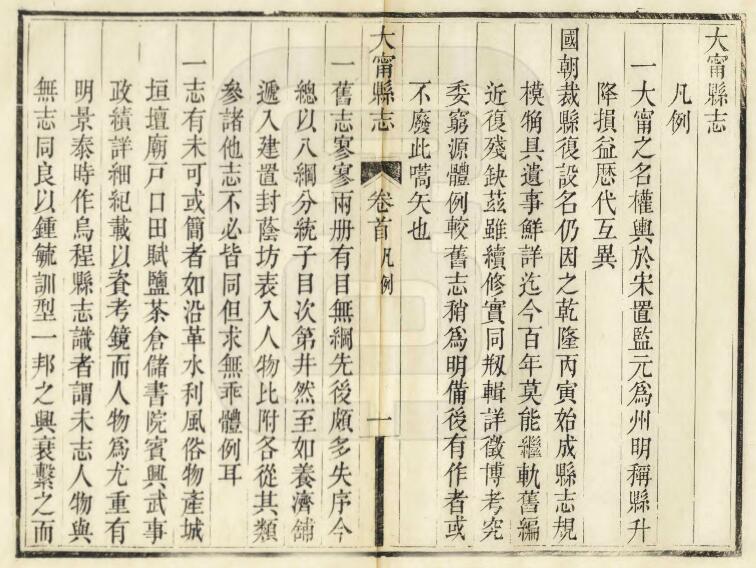 大甯縣志
凡例
一大甯之名權輿於宋置監元爲州明稱縣升
降損益厯代互異
國朝裁縣復設名仍因之乾隆丙寅始成縣志規
模觕具遺事鮮詳迄今百年莫能繼軌舊編
近復殘缺茲雖續修實同剏輯詳徵博考究
委窮源體例較舊志稍爲明備後有作者或
不廢此嚆矢也
大甯縣志 卷首 凡例 一
一舊志寥寥兩册有目無綱先後頗多失序今
總以八綱分統子目次第井然至如養濟舖
遞入建置封蔭坊表入人物比附各從其類
參諸他志不必皆同但求無乖體例耳
一志有未可或簡者如沿革水利風俗物產城
垣壇廟戸口田賦鹽茶倉儲書院賓興武事
政績詳細紀載以資考鏡而人物爲尤重有
明景泰時作烏程縣志識者謂未志人物與
無志同良以鍾毓訓型一邦之興衰繫之而